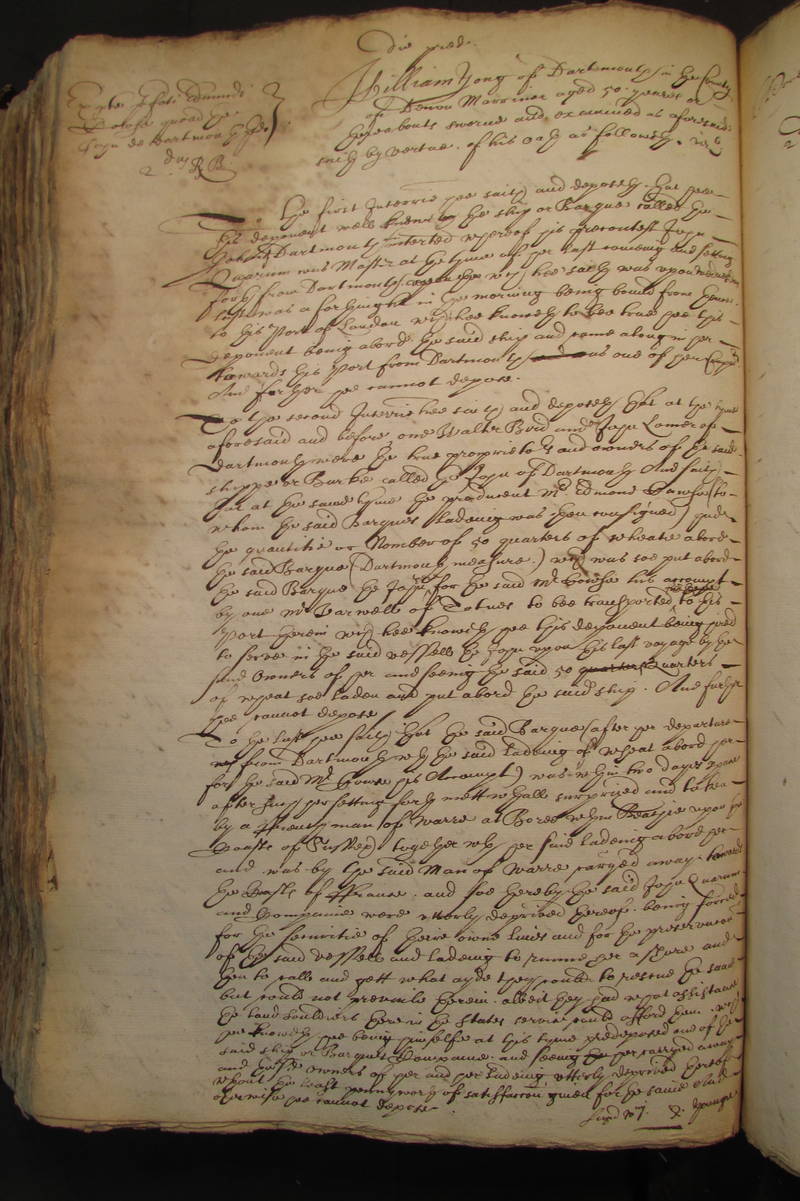 Die pred.
William Yong of Dartmouth in the County
of Devon Marriner aged 50 yeares or
thereabouts sworne and examined as aforesaid
saith by vertue of his oath as followeth. vizt
Exparte
quoad
de Dartmouth
2. dus RB.
To the first Interrie hee saith and deposeth that hee
this deponent well knew the ship or Barque called the
John of Dartmouth interted whereof his precontest John
Quarum was Master at the tyme of her last comeing and setting
forth from Dartmouth, which hee saith was upon
last was a fortnight in the morning being bound from thence
to this Port of London which hee knoweth to bee true hee this
deponent being abord the said ship and came along in her
towards this Port from Dartmouth and was one of her Company
And further hee cannot depose.
To the second Interrie hee saith and deposeth that at the tyme
aforesaid and before one Walter Bird and John Lomer of
Dartmouth were the true proprietors and owners of the said
shippe or Barke called the John of Dartmouth And saith
that at the same tyme the producent Mr Edmond (to
whom the said Barques ladeing was then consigned) had
the quantitie or Nomber of 50 quarters of wheate abord
the said Barque (Dartmouth measure.) which was soe put abord
the said Barque the John for the said Mr his accompt
by one Mr Barwell of Totnes to bee transported to this
Port herein which hee knoweth hee this deponent being hired
to serve in the said vessell the John upon this last voyage by the
said Owners of her and seeing the said 50 quarters Quarters
of wheat soe laden and put abord the said ship. And further
hee cannot depose
To the last hee saith that the said Barque (after her departure
from Dartmouth with the said ladeing of wheat abord her
for the said Mr his Accompt) was within two dayes space
after such her setting forth mett withall surprized and taken
by a ffrench man of warre at Bores within Beachie upon the
Coaste of Sussex together with her said ladeing abord her
and was by the said Man of Warre carryed away towards
the Coaste of ffrance. and soe thereby the said John Quarum
and Companie were utterly deprived thereof. being forced
for the securitie of theire owne lives and for the preservacon
of the said vessell and ladeing to runne her a shore and
then to calle and gett what ayde they could to rescue the said
but could not prevaile therein. albeit they had what assistance
the land souldiers there in the States service could afford them. which
hee knoweth hee being himselfe at this tyme predeposed one of the
said ship or Barques Companie. and seeing her carryed away
and the owners of her and her ladeing utterly deprived thereof
without the least pennyworth of satisfaction given for the same And
otherwise hee cannot depose.